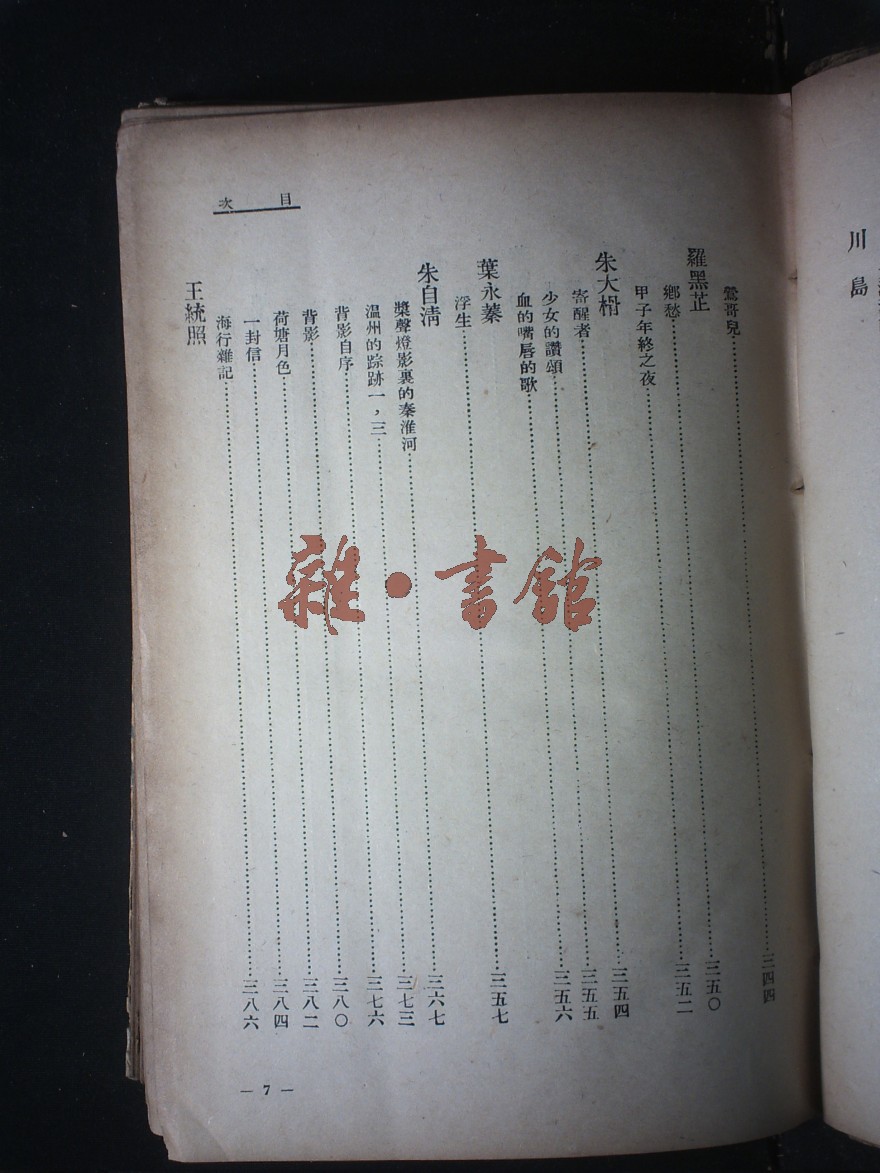 川島
目次
鶯哥兒……三四四
羅黑芷
鄉愁……三五〇
甲子年終之夜……三五二
朱大枬
寄醒者……三五四
少女的讚頌……三五五
血的嘴唇的歌……三五六
葉永蓁
浮生……三五七
朱自清
槳聲燈影裏的秦淮河……三六七
温州的踪跡一，三……三七三
背影自序……三七六
背影……三八〇
荷塘月色……三八二
一封信……三八四
海行雜記……三八六
王統照
— 7 —
雜·書館